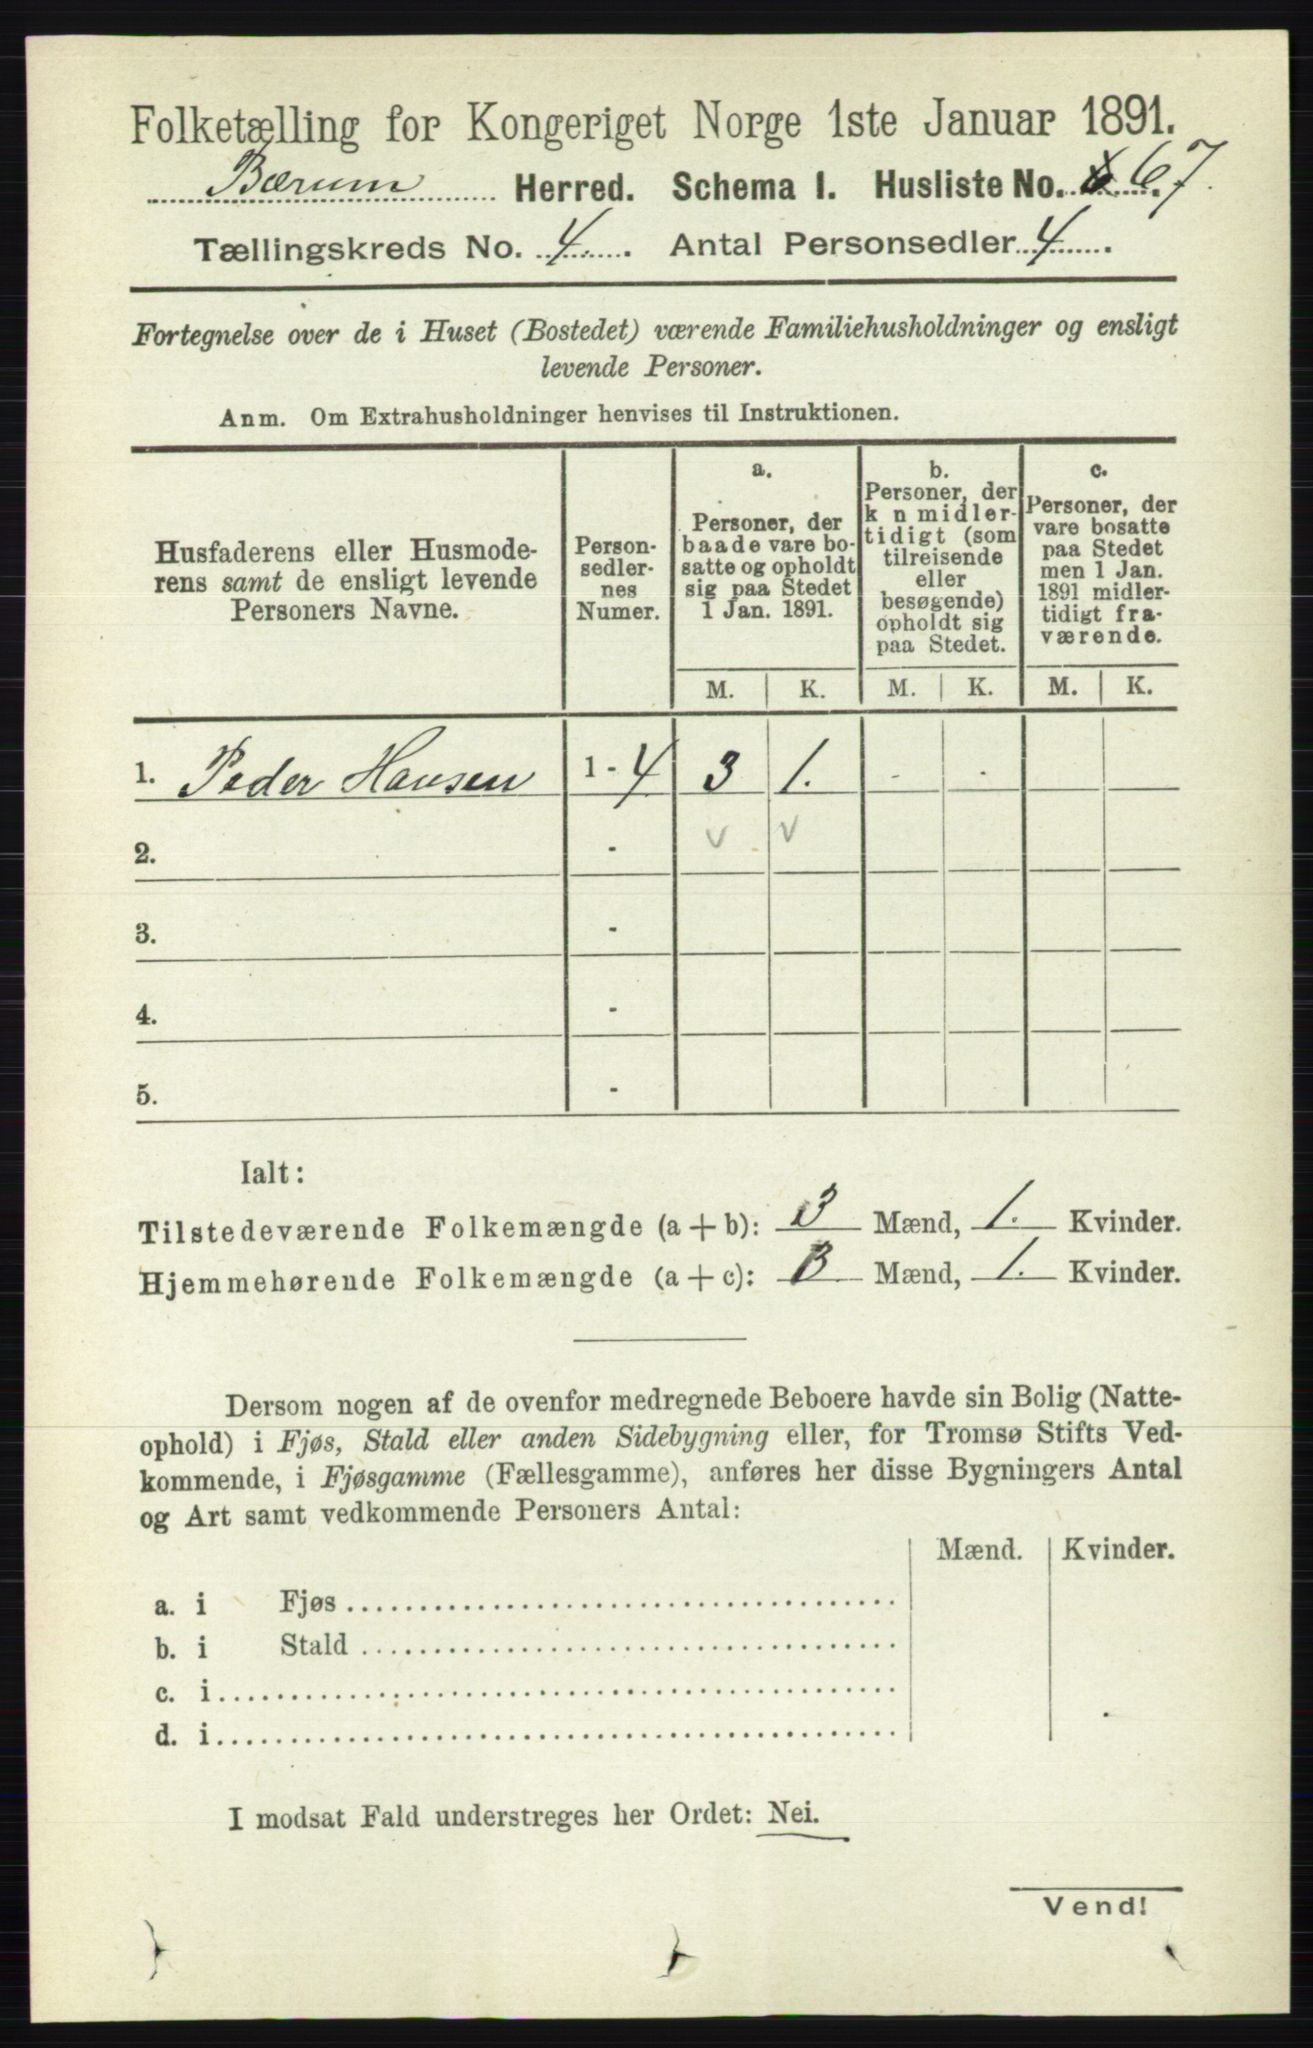 Folketælling for Kongeriget Norge 1ste Januar 1891.
Bærum Herred. Schema 1. Husliste No. 67.
Tællingskreds No. 4. Antal Personsedler 4.
Fortegnelse over de i Huset (Bostedet) værende Familiehusholdninger og ensligt
levende Personer.
Anm. Om Extrahusholdninger henvises til Instruktionen.
Husfaderens eller Husmode-
rens samt de ensligt levende
Personers Navne.
Person-
sedler-
nes
Numer.
a.
Personer, der
baade vare bo-
satte og opholdt
sig paa Stedet
1 Jan. 1891.
b.
Personer, der
k n midler-
tidigt (som
tilreisende
eller
besøgende)
opholdt sig
paa Stedet.
c.
Personer, der
vare bosatte
paa Stedet
men 1 Jan.
1891 midler-
tidigt fra-
værende.
M. K. M. K. M. K.
1. Peder Hansen 1 - 4 3 1. - -
2. - v v
3. -
4. -
5. -
Ialt:
Tilstedeværende Folkemængde (a + b): 3 Mænd, 1. Kvinder.
Hjemmehørende Folkemængde (a + c): 3 Mænd, 1. Kvinder.
Dersom nogen af de ovenfor medregnede Beboere havde sin Bolig (Natte-
ophold) i Fjøs, Stald eller anden Sidebygning eller, for Tromsø Stifts Ved-
kommende, i Fjøsgamme (Fællesgamme), anføres her disse Bygningers Antal
og Art samt vedkommende Personers Antal:
Mænd. Kvinder.
a. i Fjøs
b. i Stald
c. i
d. i
I modsat Fald understreges her Ordet: Nei.
Vend!